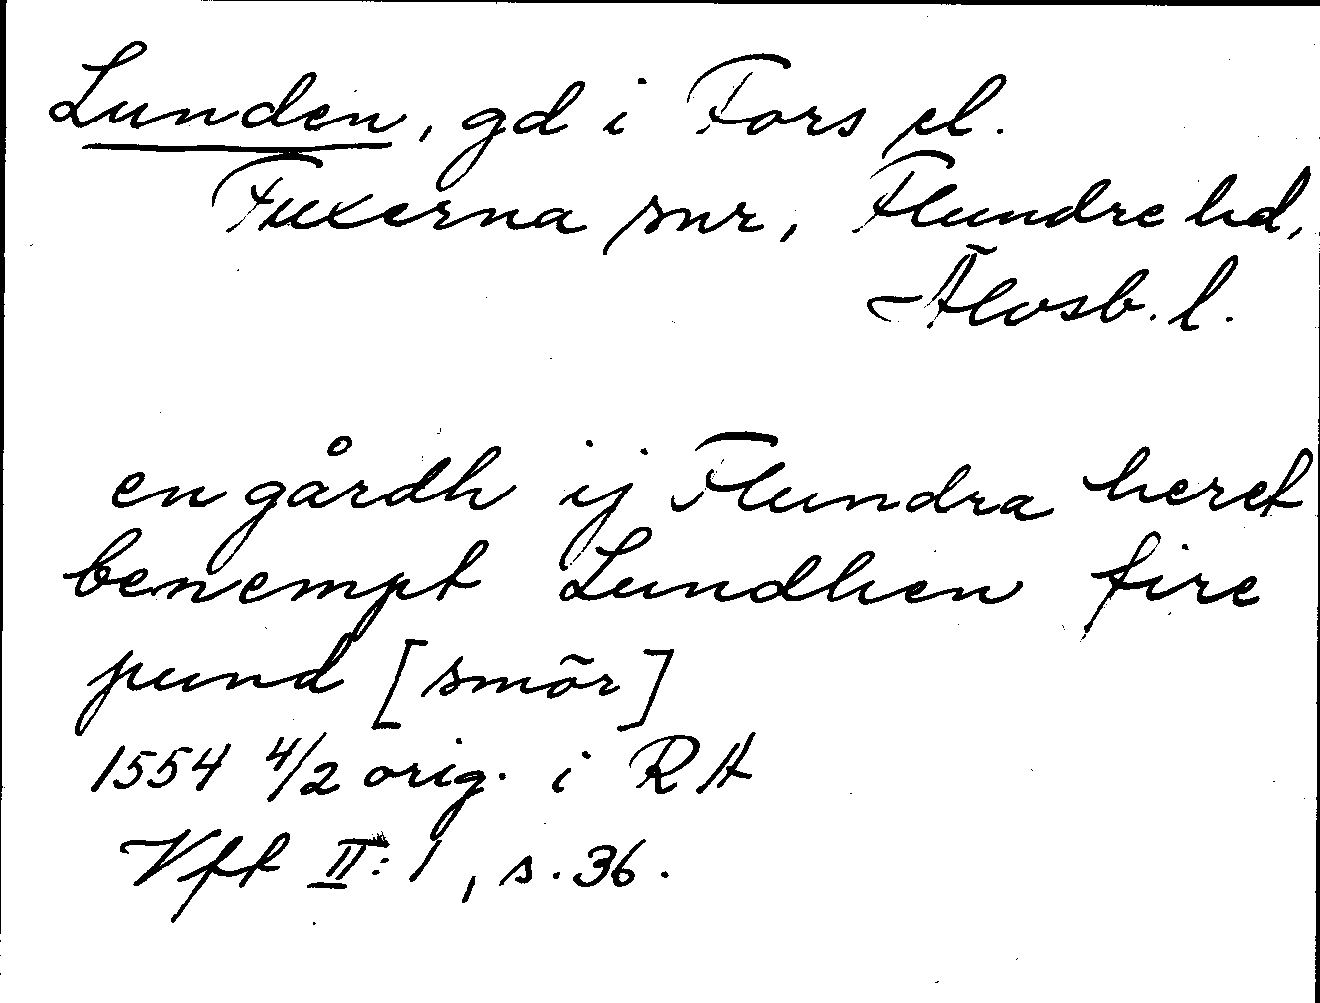 Lunden, gd i Fors el.
Fuxerna snr, Flundre hd,
Älvsb. l.
en gårdh ij Flundra heret
benempt Lundhen fire
pund [smör]
1554 4/2 orig. i RA
Vff II:1, s. 36.